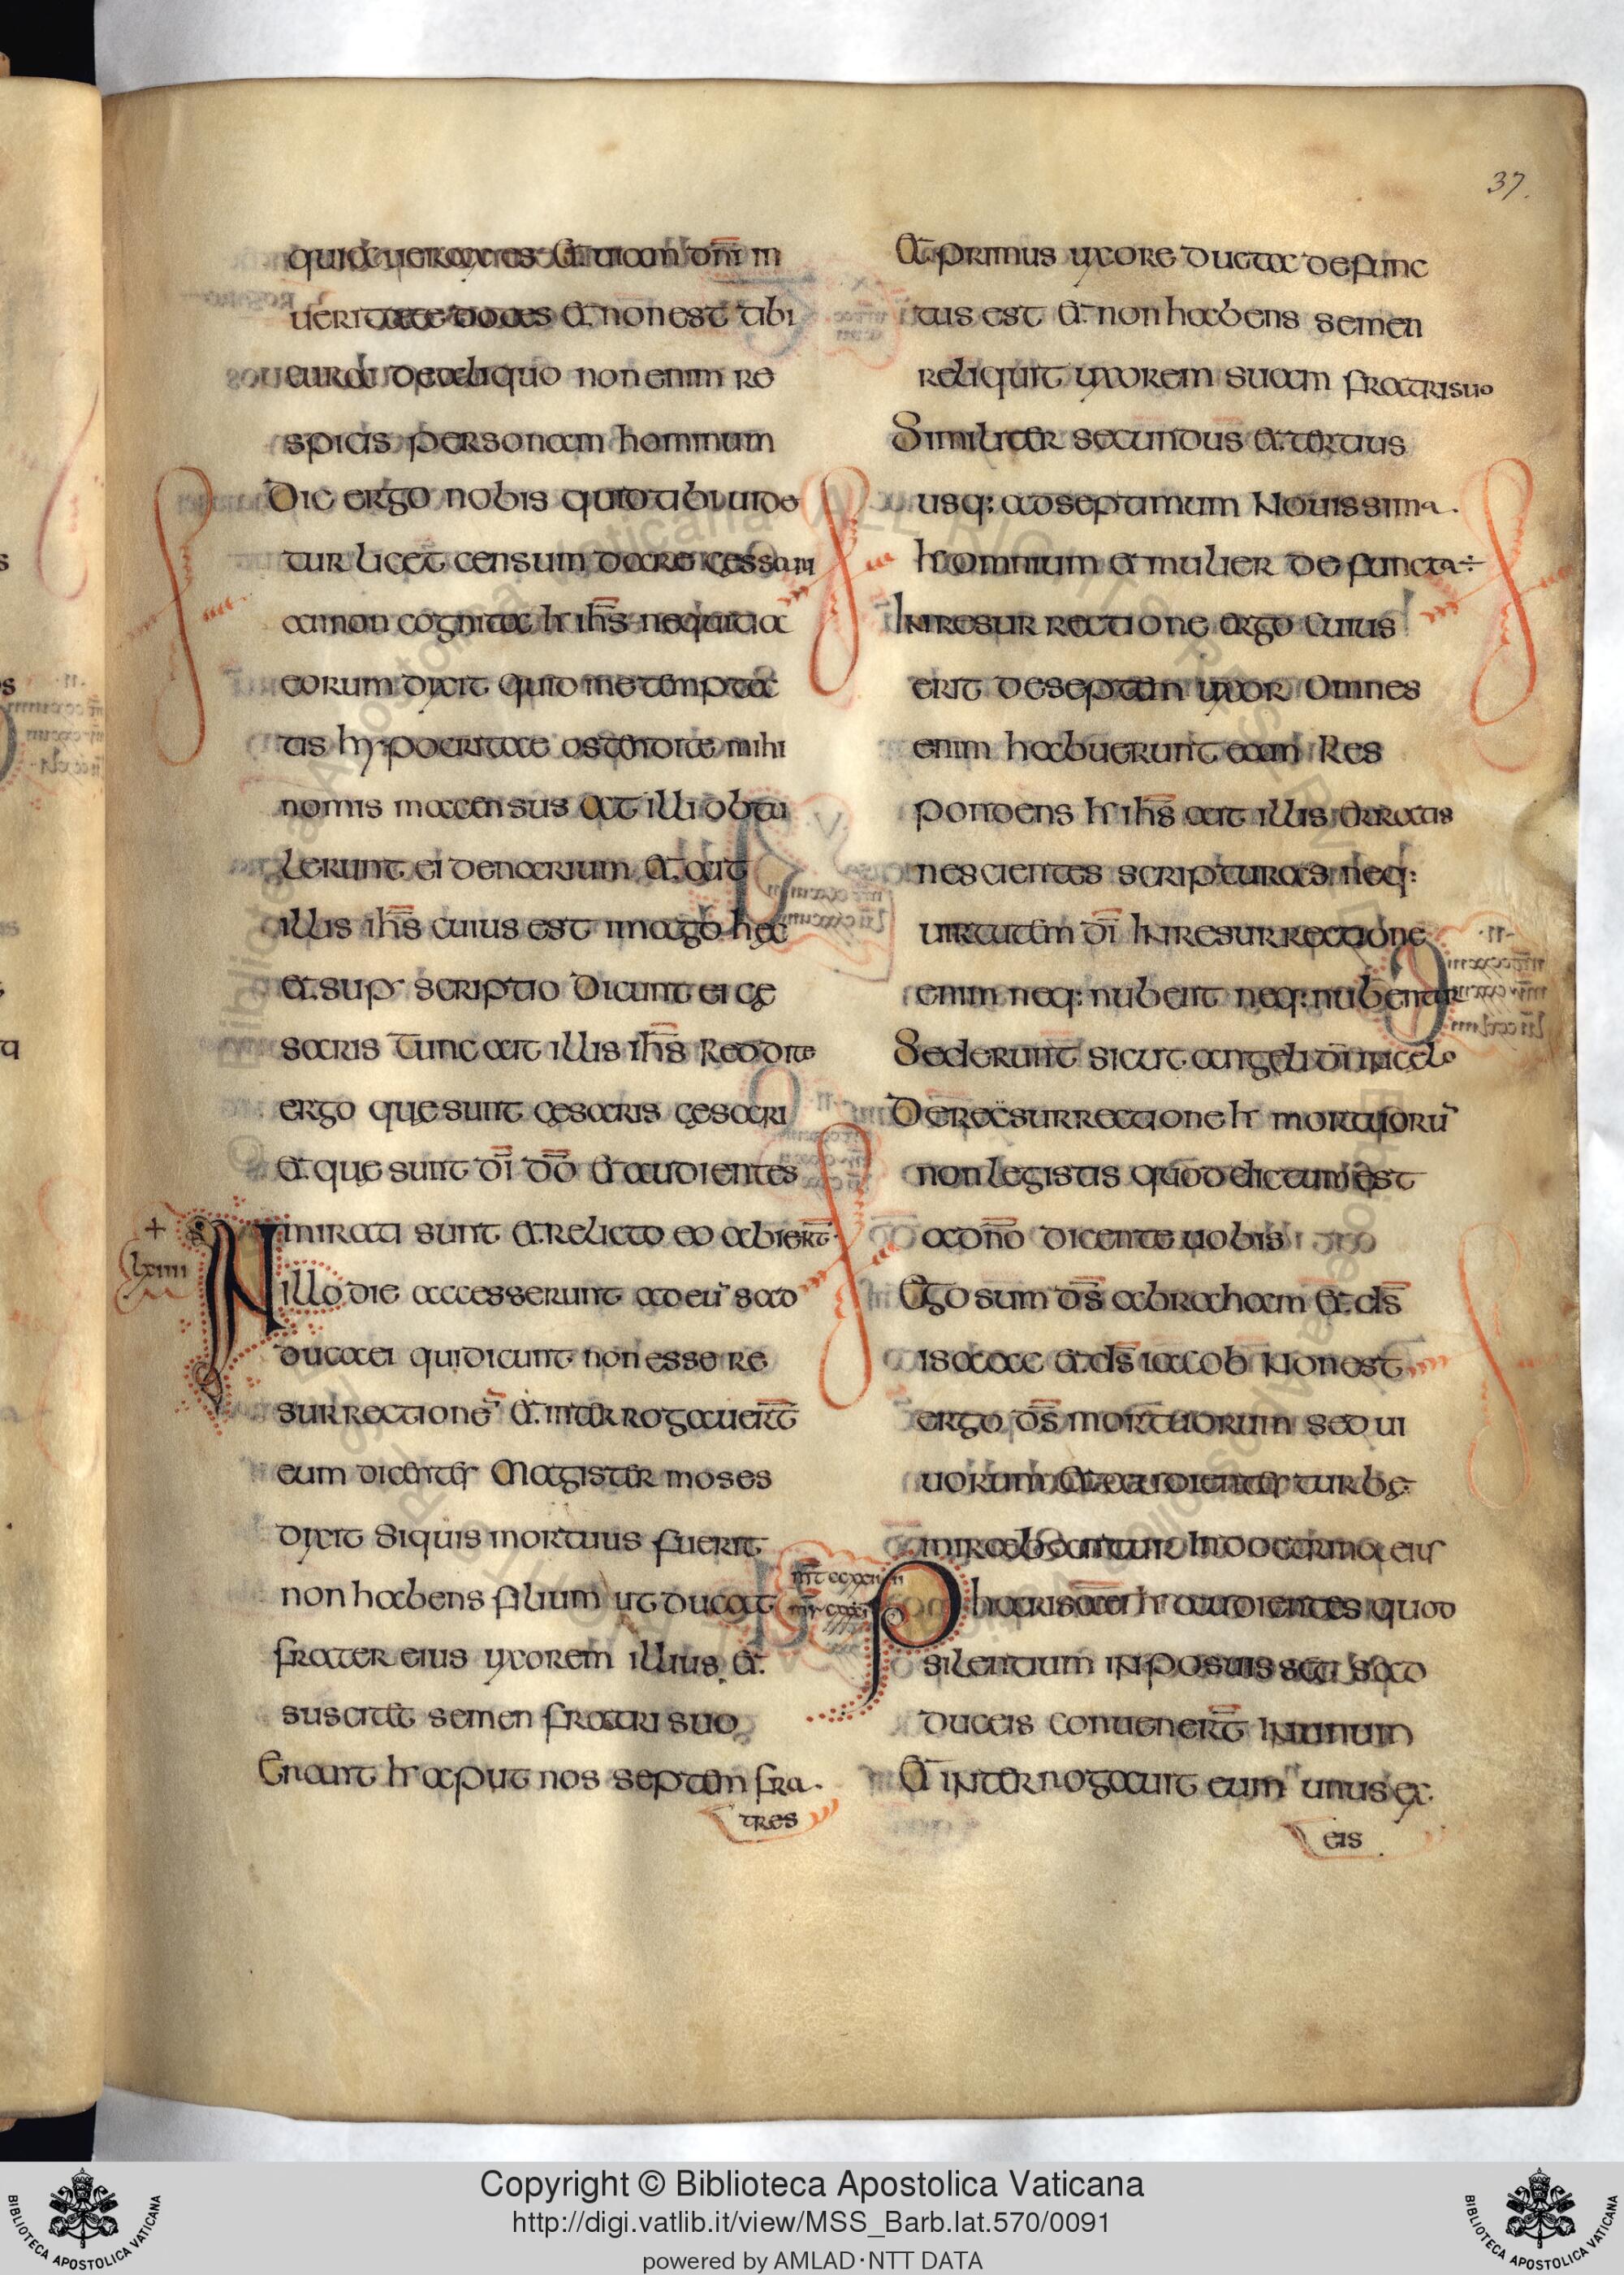 37.
quia uerax es Et uiam dn̄i in
ueritate doces et non est tibi
cura de aliquo non enim re
spicis personam hominum
Dic ergo nobis quid tibi uide
tur licet censum dare cessari
an non cognita h ih̄s nequitia
eorum dixit quid me tempta
tis hypocritae ostendite mihi
nomis ma census at illi obtu
lerunt ei denarium et ait
illis ih̄s cuius est imago hec
et sup scriptio Dicunt ei cę
saris Tunc ait illis ih̄s Reddite
ergo que sunt cęsaris cęsari
et que sunt dī dō Et audientes
mirati sunt et relicto eo abiert̄
+
lxiiii
N illo die accesserunt ad eū sad
ducaei qui dicunt non esse re
surrectionē Et interrogauert̄
eum dicentes Magister moses
dixit Siquis mortuus fuerit
non habens filium ut ducat
frater eius uxorem illius et
suscitet semen fratri suo
Erant h aput nos septem fra
tres
Et primus uxore ducta defunc
tus est et non habens semen
reliquit uxorem suam fratri suo
Similiter secundus et tertius
usq: ad septimum Nouissima
h omnium et mulier defuncta ÷
In resurrectione ergo cuius
erit de septem uxor Omnes
enim habuerunt eam Res
pondens h ih̄s ait illis erratis
nescientes scripturas neq:
uirtutem dī In resurrectione
enim neq: nubent neq: nubentur
Sed erunt sicut angeli dī in celo
De resurrectione h mortuorū
non legistis quod dictum est
a dn̄o dicente uobis
Ego sum ds̄ abraham et ds̄
isaac et ds̄ iacob Non est
ergo ds̄ mortuorum sed ui
uorum Et audientes turbę
mirabantur In doctrina eius
P harisaei h audientes quod
silentium inposuisset sad
duceis conuenert̄ In unum
Et interrogauit eum unus ex
eis
Copyright © Biblioteca Apostolica Vaticana
http://digi.vatlib.it/view/MSS_Barb.lat.570/0091
powered by AMLAD·NTT DATA
BIBLIOTECA APOSTOLICA VATICANA
BIBLIOTECA APOSTOLICA VATICANA